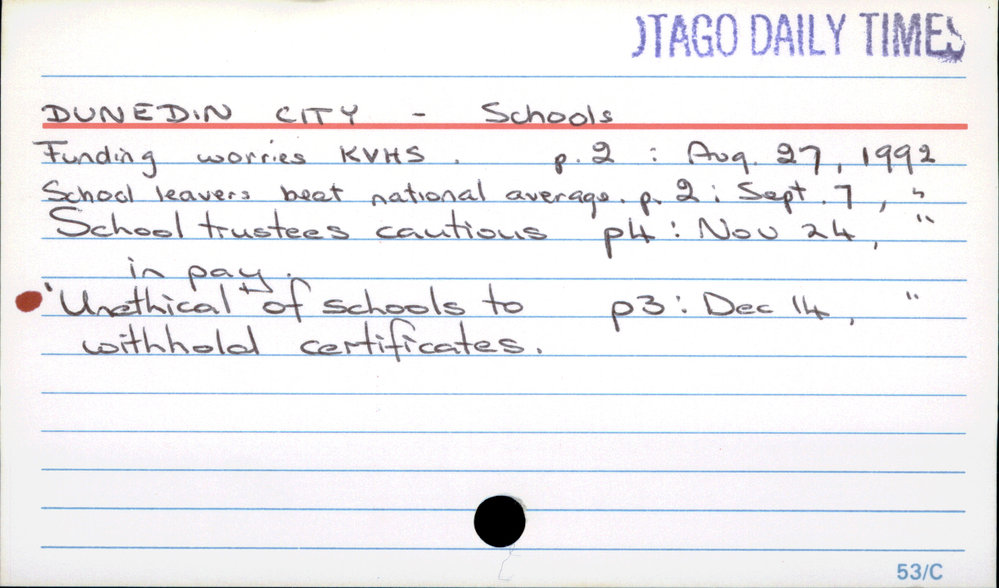 OTAGO DAILY TIMES
DUNEDIN CITY - Schools
Funding worries KVHS. p.2 : Aug. 27, 1992
School leavers beat national average. p. 2 : Sept. 7, "
School trustees cautious p4 : Nov 24, "
in pay.
'Unethical" of schools to p3 : Dec 14, "
withhold certificates.
53/C